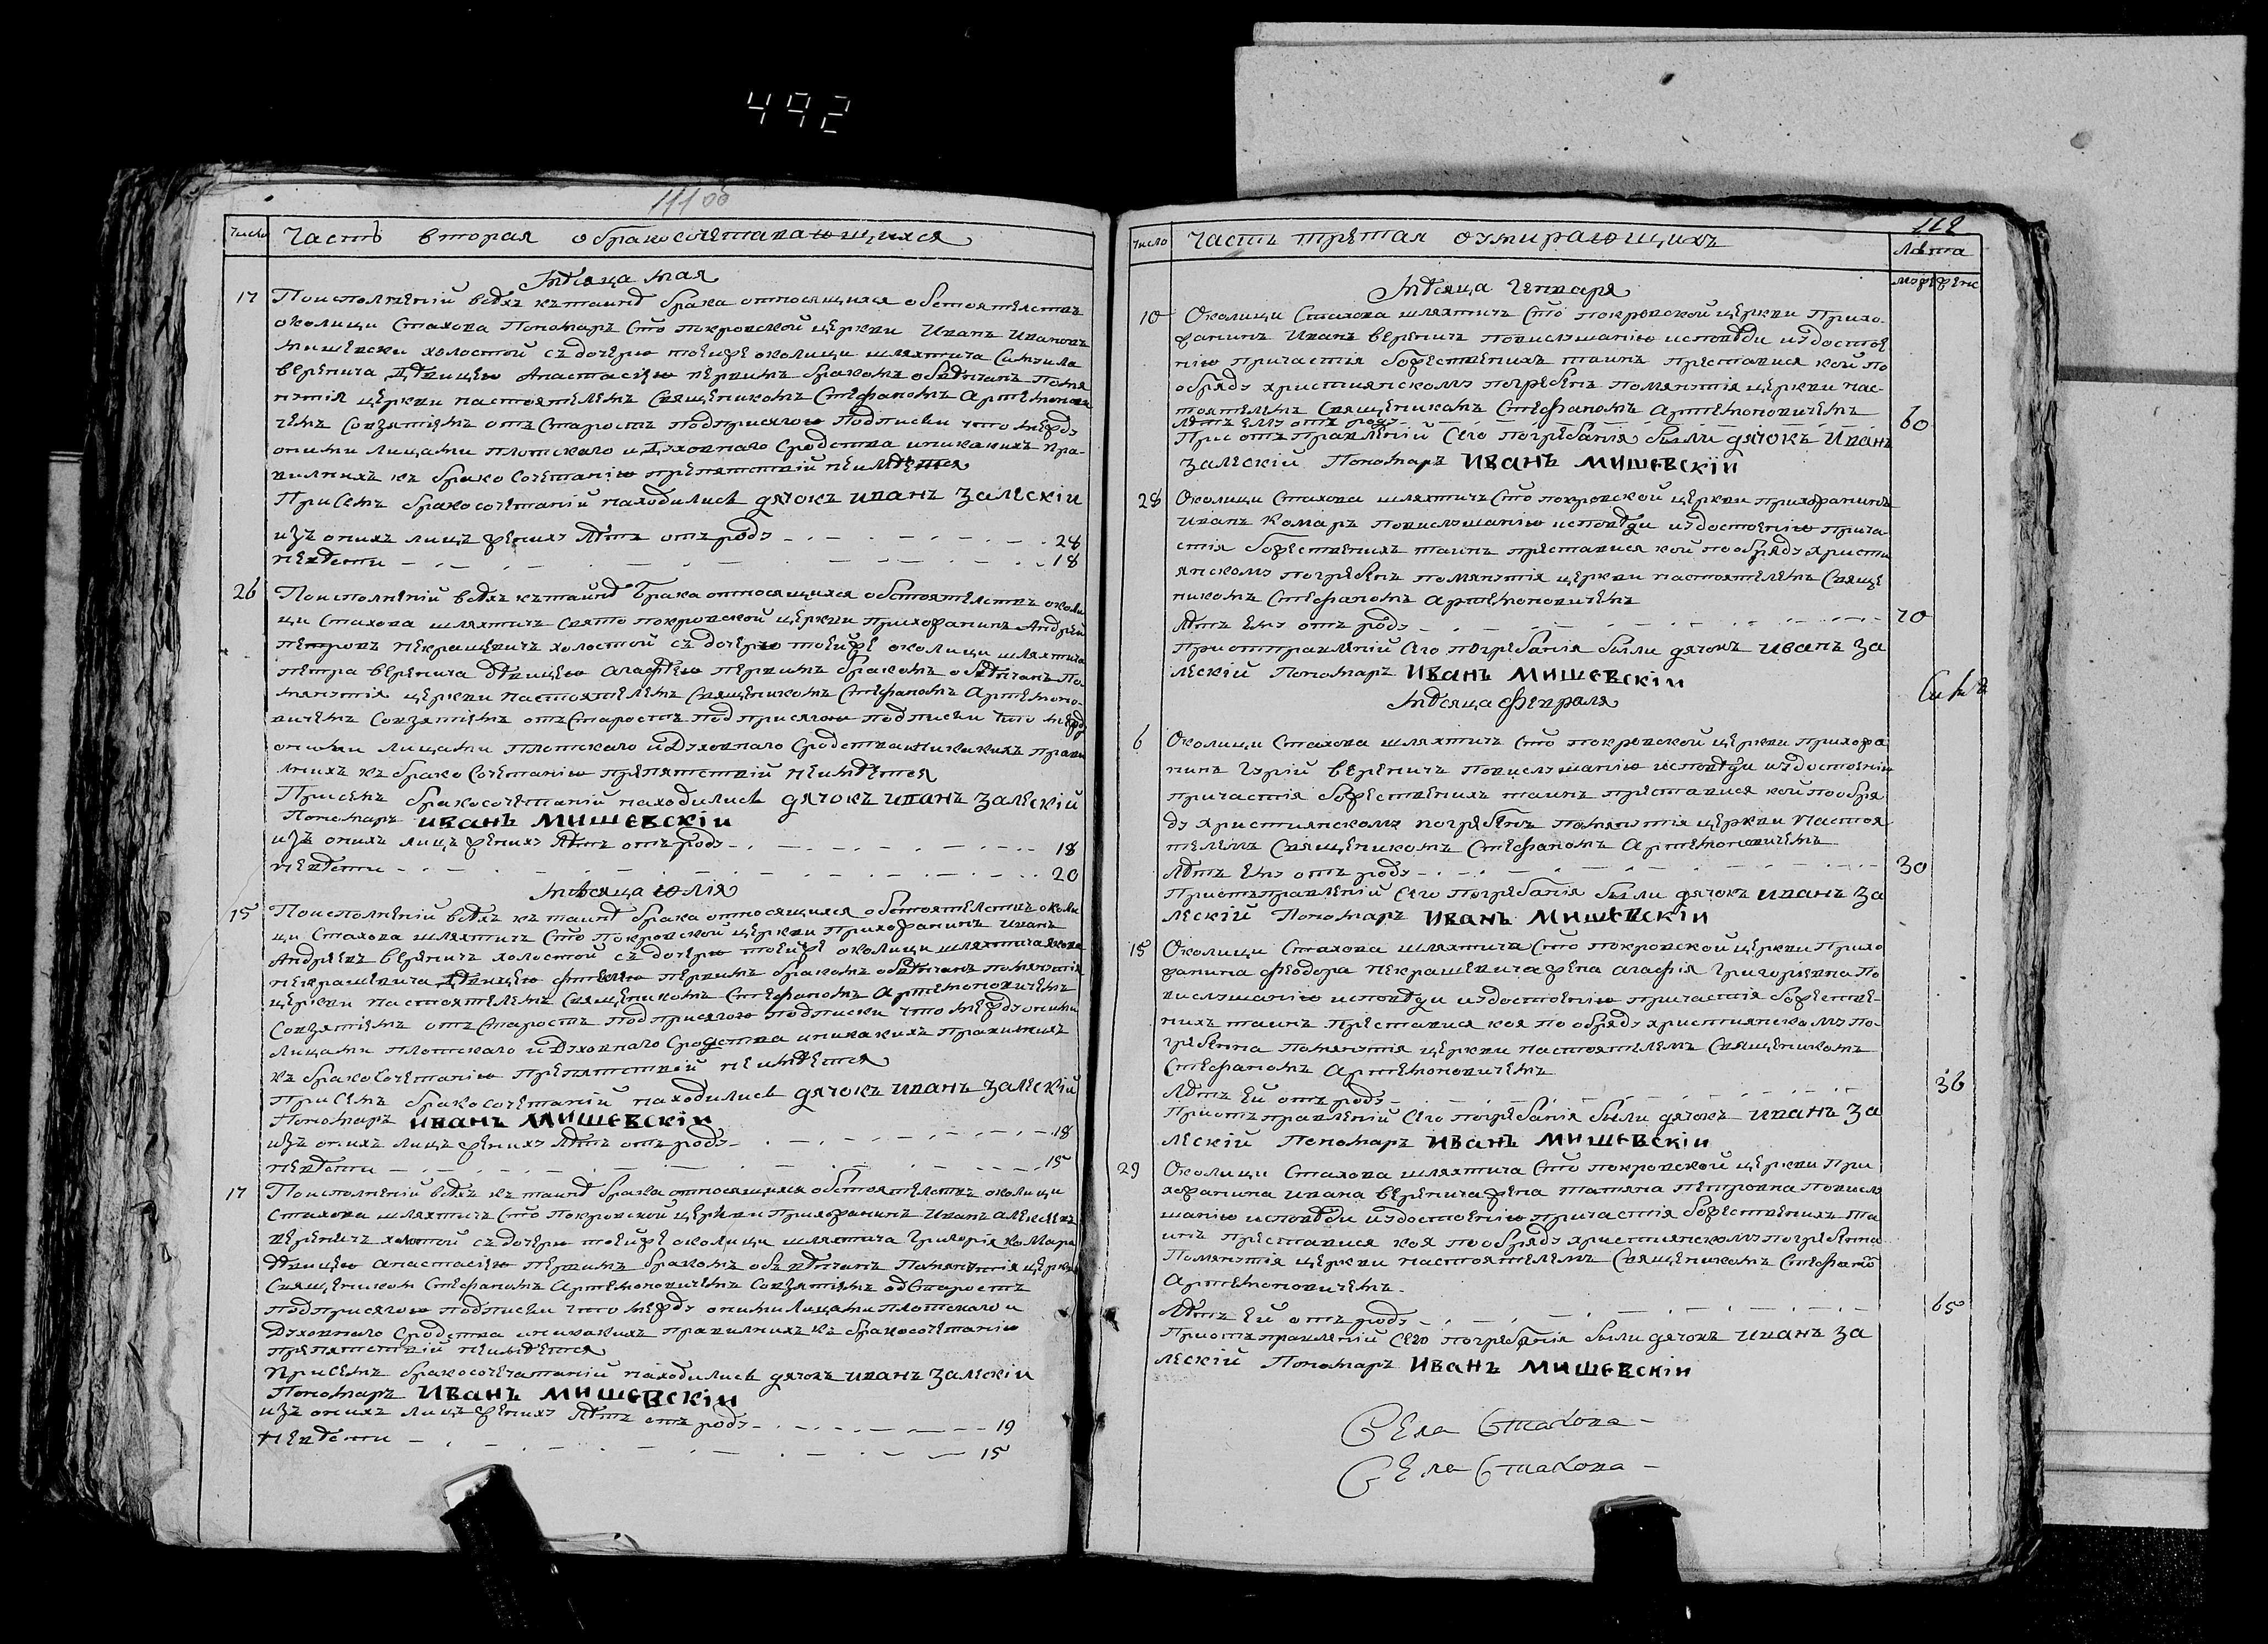 492
111 об
Число Часть вторая обракосочетавающихся
Мѣсяца мая
17 По исполненій всѣхъ къ таинѣ брака относящихся обстоятелствъ
околици Стахова Пономаръ Сто покровской церкви Иванъ Ивановъ
Мишевски холостой съ дочерю тоейже околици шляхтича Самуила
Веренича Дѣвицею Анастасіею первимъ бракомъ обвѣнчанъ помя
нутія церкви настоятелемъ Священикомъ Стефаномъ Артемонови
чемъ Совзятіемъ отъ Старостъ подприсягою Подписки что между
оними лицами плотскаго и Духовнаго Сродства иникакихъ пра-
вилнихъ къ брако Сочетанію препятствій неимѣется
При Семъ бракосочетаній находились дячокъ иванъ залескіи
изъ онихъ лицъ женихъ лѣтъ отъ роду 28
невѣсти 18
26 По исполненій всѣхъ къ таинѣ Брака относящихся обстоятелствъ околи
ци Стахова шляхтичъ Свято покровской церкви прихожанинъ Андрей
петровъ некрашевичъ холостой съ дочерю тоейже околици шляхтича
петра веренича дѣвицею агафіею первимъ бракомъ обвѣнчанъ По-
мянутія церкви настоятелемъ Священикомъ Стефаномъ Артемоно-
вичемъ Совзятіемъ отъ Старостъ под присягою подписки что между
оними лицами плотскаго и Духовнаго Сродства иникакихъ прави
лнихъ къ брако Сочетанію препятствій неимѣется
Присемъ бракосочетаній находились дячокъ иванъ залескій
Пономаръ иванъ мишевскіи
изъ онихъ лицъ женихъ лѣтъ отъ роду 18
невѣсти 20
Мѣсяца юлія
15 По исполненій всѣхъ къ таинѣ брака относящихся обстоятелствъ околи
ци Стахова шляхтичъ Сто покровской церкви прихожанинъ Иванъ
Андреевъ вереничъ холостой съ дочерю тоейже околици шляхтича якова
некрашевича Дѣвицею первимъ бракомъ обвѣнчанъ помянутія
церкви настоятелемъ Священикомъ Стефаномъ Артемоновичемъ
Совзятіемъ отъ Старостъ подприсягою подписки что между оними
лицами плотскаго и Духовнаго Сродства иникакихъ правилнихъ
къ брако Сочетанію препятствій неимѣется
При Семъ бракосочетаній находились дячокъ иванъ залескій
Пономаръ иванъ мишевскіи
изъ онихъ лицъ женихъ лѣтъ отъ роду 18
невѣсти 15
17 По исполненій всѣхъ къ таинѣ брака относящихся обстоятелствъ околици
Стахова шляхтичъ Сто Покровской церкви Прихожанинъ Иванъ алексеевъ
вереничъ холостой съ дочерю тоейже околици шляхтича Григорія комара
Дѣвицею анастасіею первимъ бракомъ обвѣнчанъ Помянутія церкви
Священикомъ Стефаномъ Артемоновичемъ Совзятіемъ одСтаростъ
подприсягою подписки что между оними лицами плотскаго и
Духовнаго Сродства иникакихъ правилнихъ къ бракосочетанію
препятствій неимѣется
Присемъ бракосочечатаній находились дячокъ иванъ залескіи
Пономаръ иванъ мишевскіи
изъ онихъ лицъ женихъ лѣтъ отъ роду 19
Невѣсти 15
112
Число Часть третая оумирающихъ Лѣта
муже женс
Мѣсяца Генваря
10 Околици Стахова шляхтичъ Сто покровской церкви Прихо-
жанинъ Иванъ вереничъ повислушанію исповѣди иудостое
нію причастія божественихъ таинъ преставися кой по
обряду християнскому погребенъ помянутія церкви нас-
тоятелемъ Священикомъ Стефаномъ Артемоновичемъ
Лѣтъ ему отъ роду 60
При отъправленій Сего погребанія были дячокъ Иванъ
залескій Пономаръ иванъ мишевскіи
28 Околици Стахова шляхтичъ Сто покровской церкви прихожанинъ
иванъ комаръ повислушанію исповѣди иудостоенію прича
стія божественихъ таинъ преставися кой пообряду христи
янскому погребенъ помянутія церкви настоятелемъ Свяще
никомъ Стефаномъ Артемоновичемъ
Лѣтъ ему отъ роду 70
Приотправленій Сего погребанія были дячокъ иванъ за
лескій Пономаръ иванъ мишевскіи
Мѣсяца февраля
6 Околици Стахова шляхтичъ Сто покровской церкви прихожа
нинъ Гурій вереничъ повислушанію исповѣди иудостоенію
причастія божественихъ таинъ преставися кой пообря
ду християнскому погребенъ помянутія церкви Настоя
телемъ Священикомъ Стефаномъ Артемоновичемъ
Лѣтъ ему отъ роду 30
Приотъправленій Сего погребанія были дячокъ иванъ за
лескій Пономаръ иванъ мишевскіи
15 Околици Стахова шляхтича Сто покровской церкви Прихо
жанина феодора некрашевича жена агафія Григориевна по
вислушанію исповѣди иудостоенію причастія божестве-
нихъ таинъ преставися коя по обряду християнскому по-
гребенна помянутія церкви настоятелемъ Священикомъ
Стефаномъ Артемоновичемъ
Лѣтъ Ей отъ роду 36
Приотъправленій Сего погребанія были дячокъ иванъ за
лескій Пономаръ иванъ мишевскіи
29 Околици Стахова шляхтича Сто покровской церкви При
хожанина ивана веренича жена татяна петровна повислу
шанію исповѣди иудостоенію причастія божественихъ та
инъ преставися коя пообряду християнскому погребенна
Помянутія церкви настоятелемъ Священикомъ Стефано
Артемоновичемъ
Лѣтъ Ей отъ роду 65
Приотъправленій Сего погребанія были дячокъ иванъ за
лескій Пономаръ иванъ мишевскіи
Села Стахова
Села Стахова